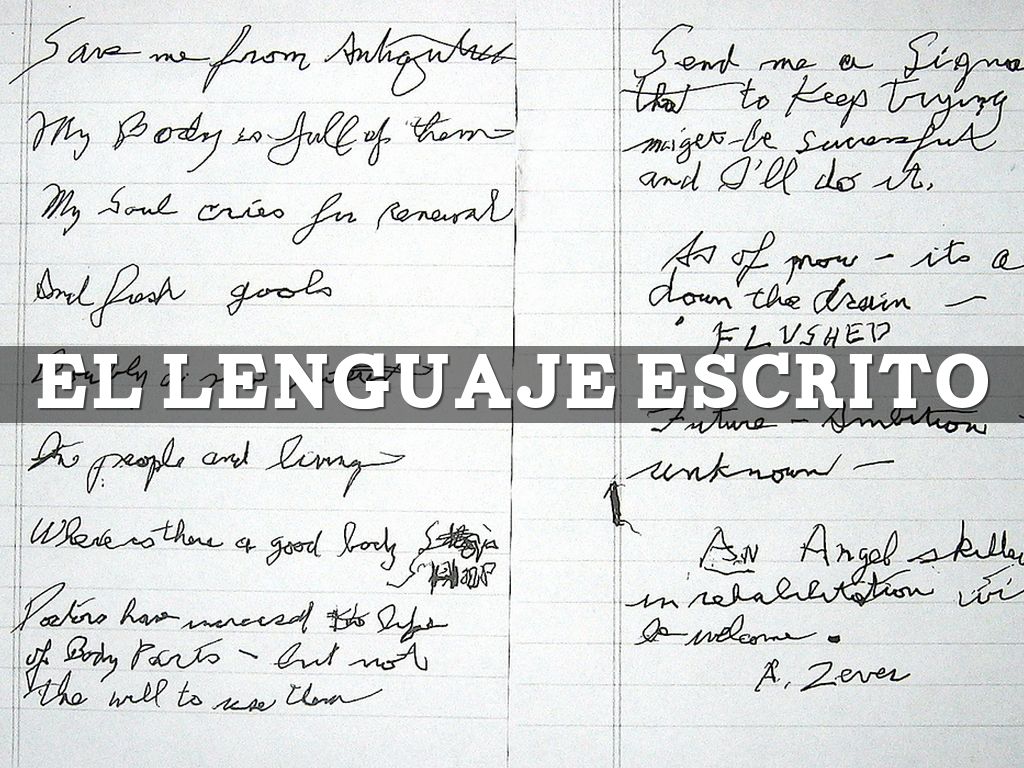 Save me from
My Body is full of them
My Soul cries for renewal
And fresh goals
EL LENGUAJE ESCRITO
people and living
Where is there a good body
SHOP
have increased life
of Body Parts - but not
the will to use them
Send me a Signa
that to Keep trying
might be successful
and I'll do it.
As of now - its a
down the drain -
FLUSHED
Future - Ambition -
unknown -
An Angel skilled
in rehabilitation wi
be welcome.
A. Zever